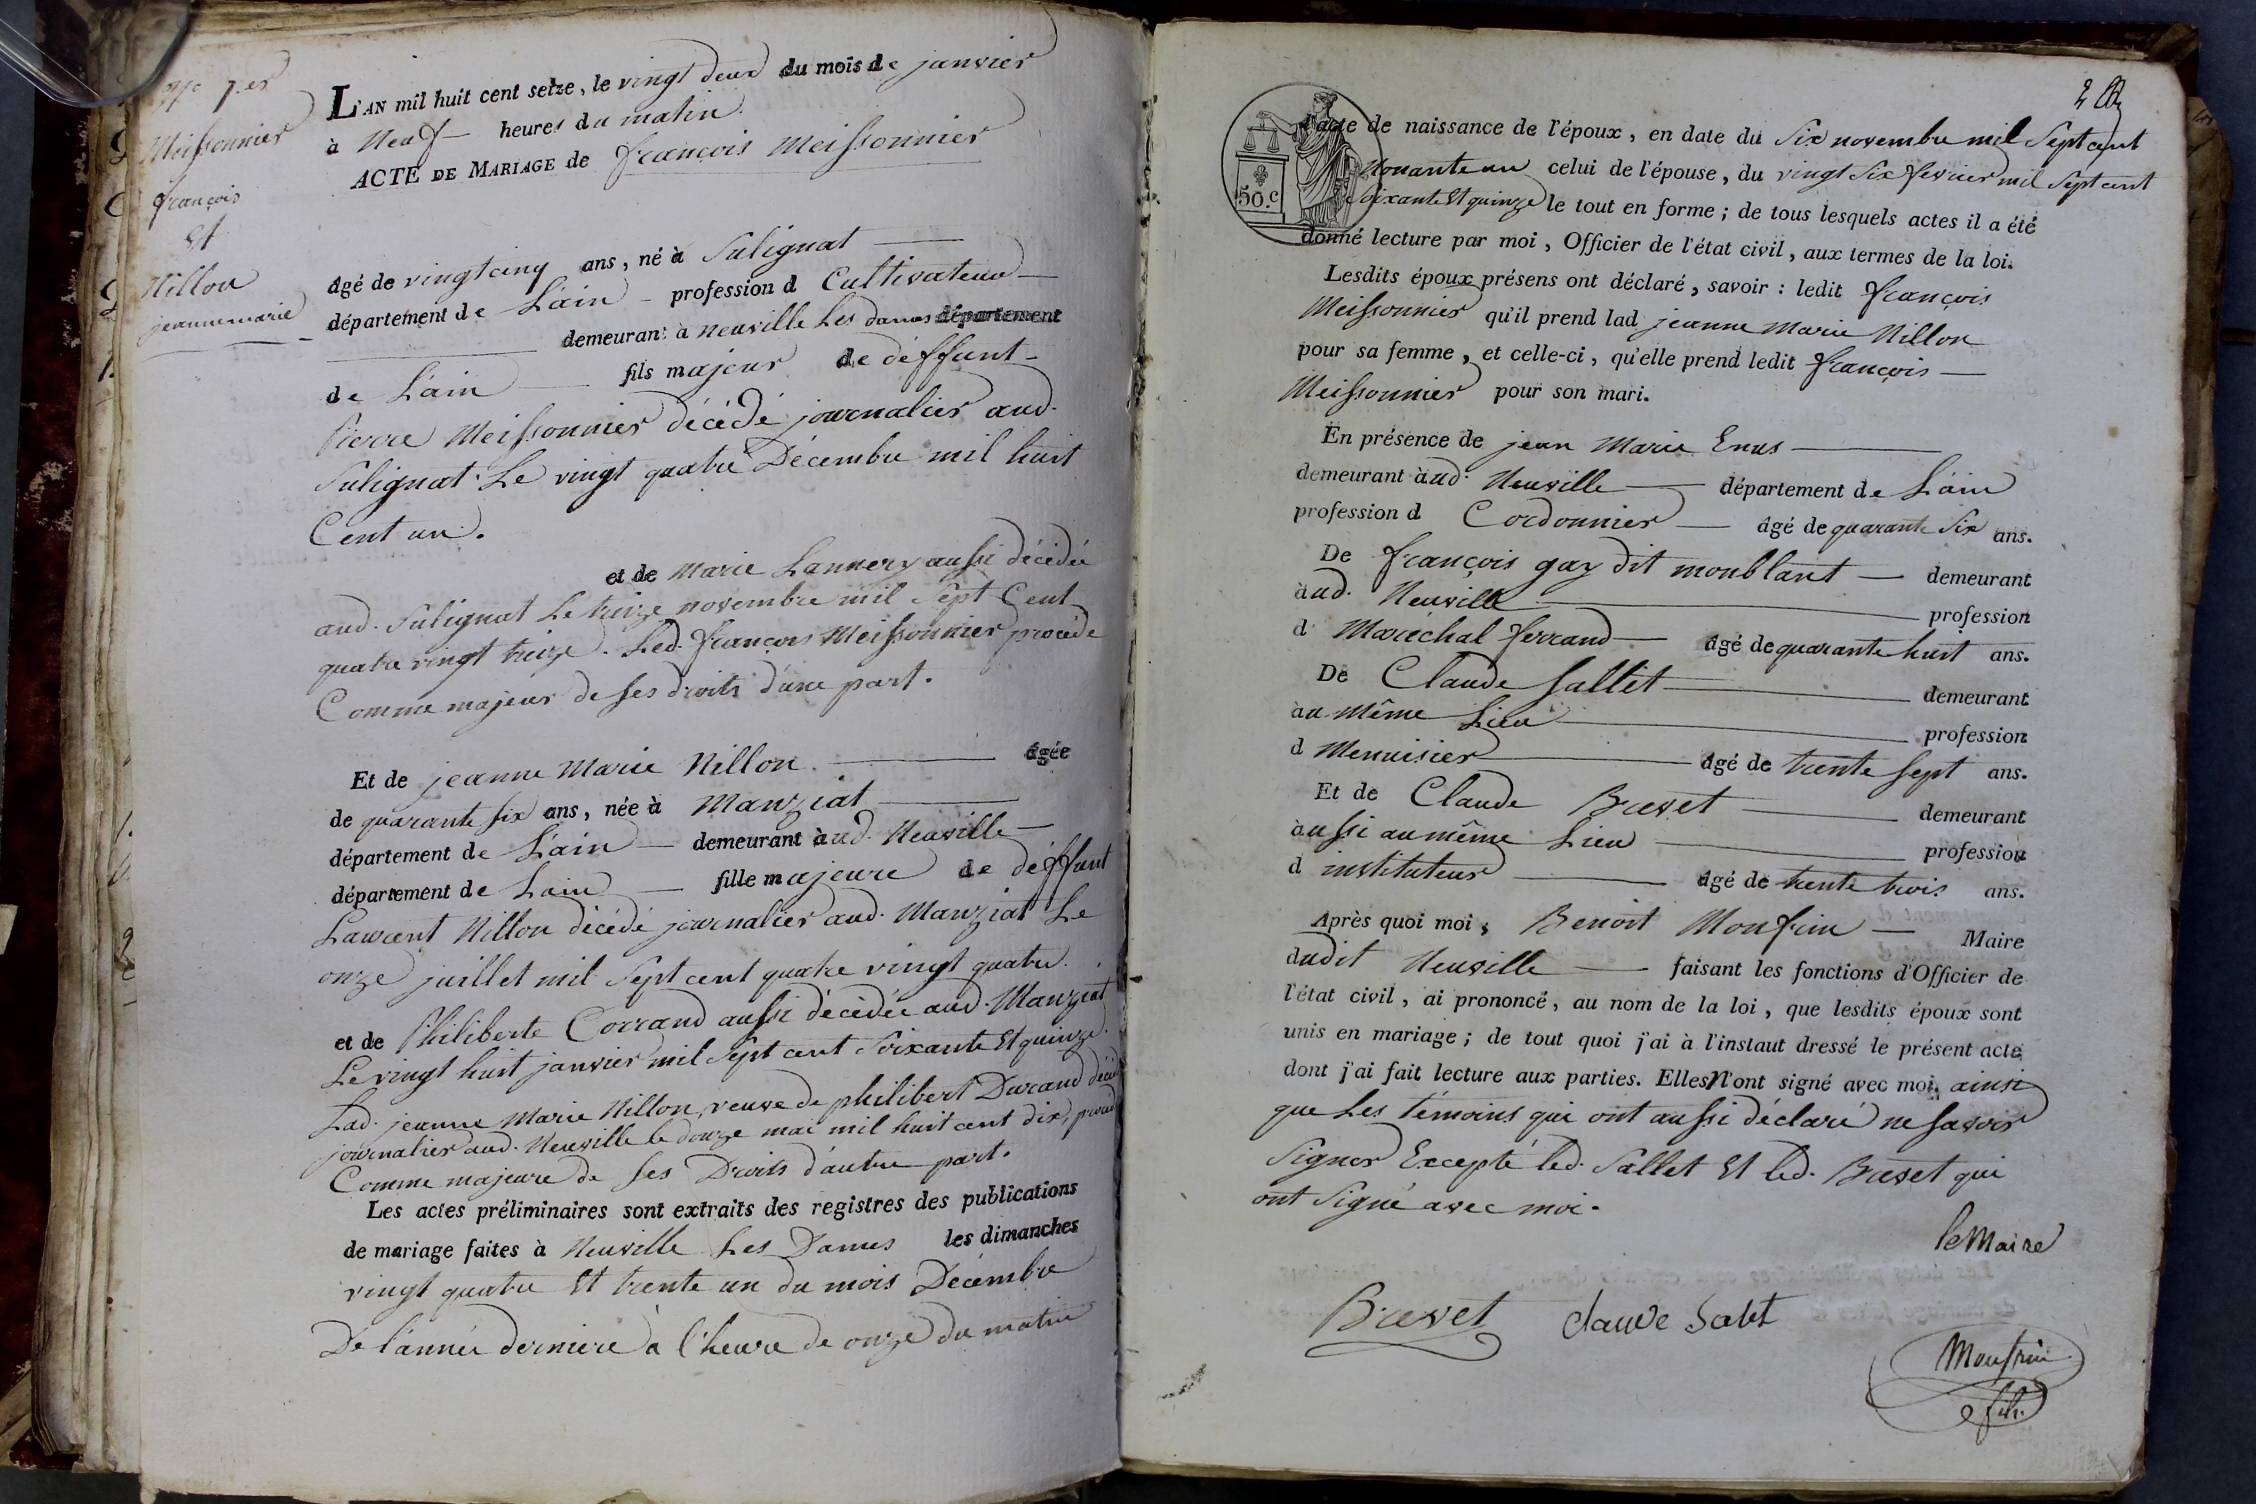 N.o 1.er
Meissonnier
françois
Et
Nillon
jeanne marie
L'AN mil huit cent seize, le vingt deux du mois de janvier
à Neuf heures du matin.
ACTE DE MARIAGE de françois Meissonnier
âgé de vingt cinq ans, né à Sulignat
département de L'ain profession d Cultivateur
demeurant à neuville Les dames département
de L'ain fils majeur de déffunt
Pierre Meissonnier décédé journalier aud.
Sulignat. Le vingt quatre Décembre mil huit
Cent un.
et de Marie Lannery aussi décédée
aud. Sulignat Le treize novembre mil Sept Cent
quatre vingt treize. Led. françois Meissonnier procéde
Comme majeur de ses droits d'une part.
Et de jeanne Marie Nillon âgée
de quarante six ans, née à Manziat
département de L'ain demeurant àud. Neuville
département de Lain fille majeure de déffunt
Laurent Nillon décédé journalier aud. Manziat Le
onze juillet mil Sept cent quatre vingt quatre.
et de Philiberte Corrand aussi décédée aud. Manziat
Le vingt huit janvier mil Sept cent Soixante Et quinze.
Lad. jeanne Marie Nillon, veuve de philibert Durand
journalier aud. Neuville le douze mai mil huit cent dix,
Comme majeure de ses Droits d'autre part.
Les actes préliminaires sont extraits des registres des publications
de mariage faites à Neuville Les Dames les dimanches
vingt quatre Et trente un du mois Décembre
De l'année derniere à l'heure de onze du matin
2
50.c
acte de naissance de l'époux, en date du Six novembre mil Sept cent
Nonante un celui de l'épouse, du vingt Six fevrier mil Sept cent
Soixante Et quinze le tout en forme; de tous lesquels actes il a été
donné lecture par moi, Officier de l'état civil, aux termes de la loi.
Lesdits époux présens ont déclaré, savoir: ledit françois
Meissonnier qu'il prend lad jeanne Marie Nillon
pour sa femme, et celle-ci, qu'elle prend ledit françois
Meissonnier pour son mari.
En présence de jean Marie Enus
demeurant àud. Neuville département de L'ain
profession d Cordonnier âgé de quarante Six ans.
De françois gay dit monblant demeurant
àud. Neuville profession
d Maréchal ferrand âgé de quarante huit ans.
De Claude Sallet demeurant
àu même Lieu profession
d Menuisier âgé de trente Sept ans.
Et de Claude Brevet demeurant
àussi au même Lieu profession
d instituteur âgé de trente trois ans.
Après quoi moi, Benoit Monfrin Maire
dudit Neuville faisant les fonctions d'Officier de
l'état civil, ai prononcé, au nom de la loi, que lesdits époux sont
unis en mariage; de tout quoi j'ai à l'instaut dressé le présent acte
dont j'ai fait lecture aux parties. Elles N'ont signé avec moi, ainsi
que Les témoins qui ont aussi déclaré ne savoir
Signer Excepté led. Sallet Et led. Brevet qui
ont Signé avec moi.
le Maire
Brevet claude Salet
Monfrin
fils